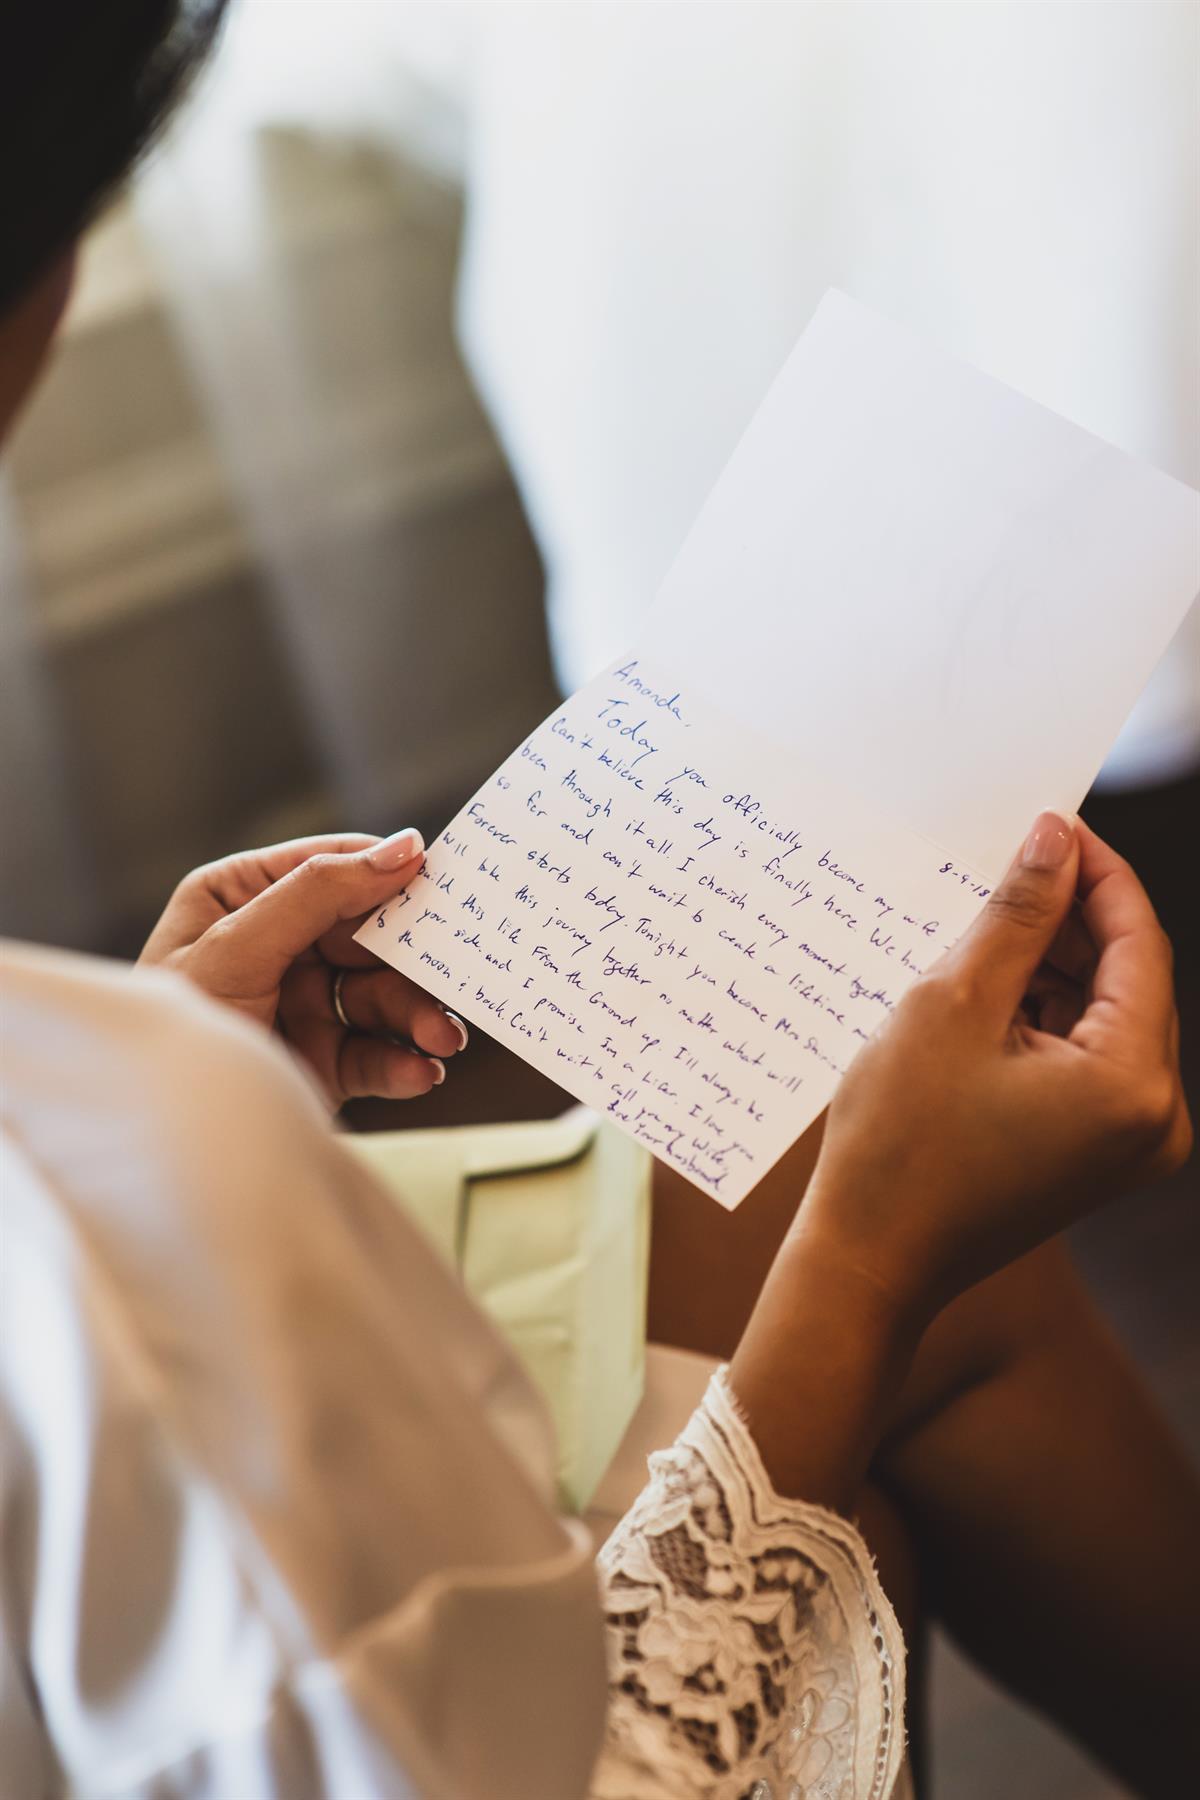 8-9-18
Amanda,
Today you officially become my wife -
can't believe this day is finally here. We have
been through it all. I cherish every moment together
so far and can't wait to create a lifetime
Forever starts today. Tonight you become Mrs
will take this journey together no matter what will
build this life From the Ground up. I'll always be
by your side. and I promise Im a Lifer. I love you
to the moon & back. Can't wait to call you my Wife.
Love Your husband